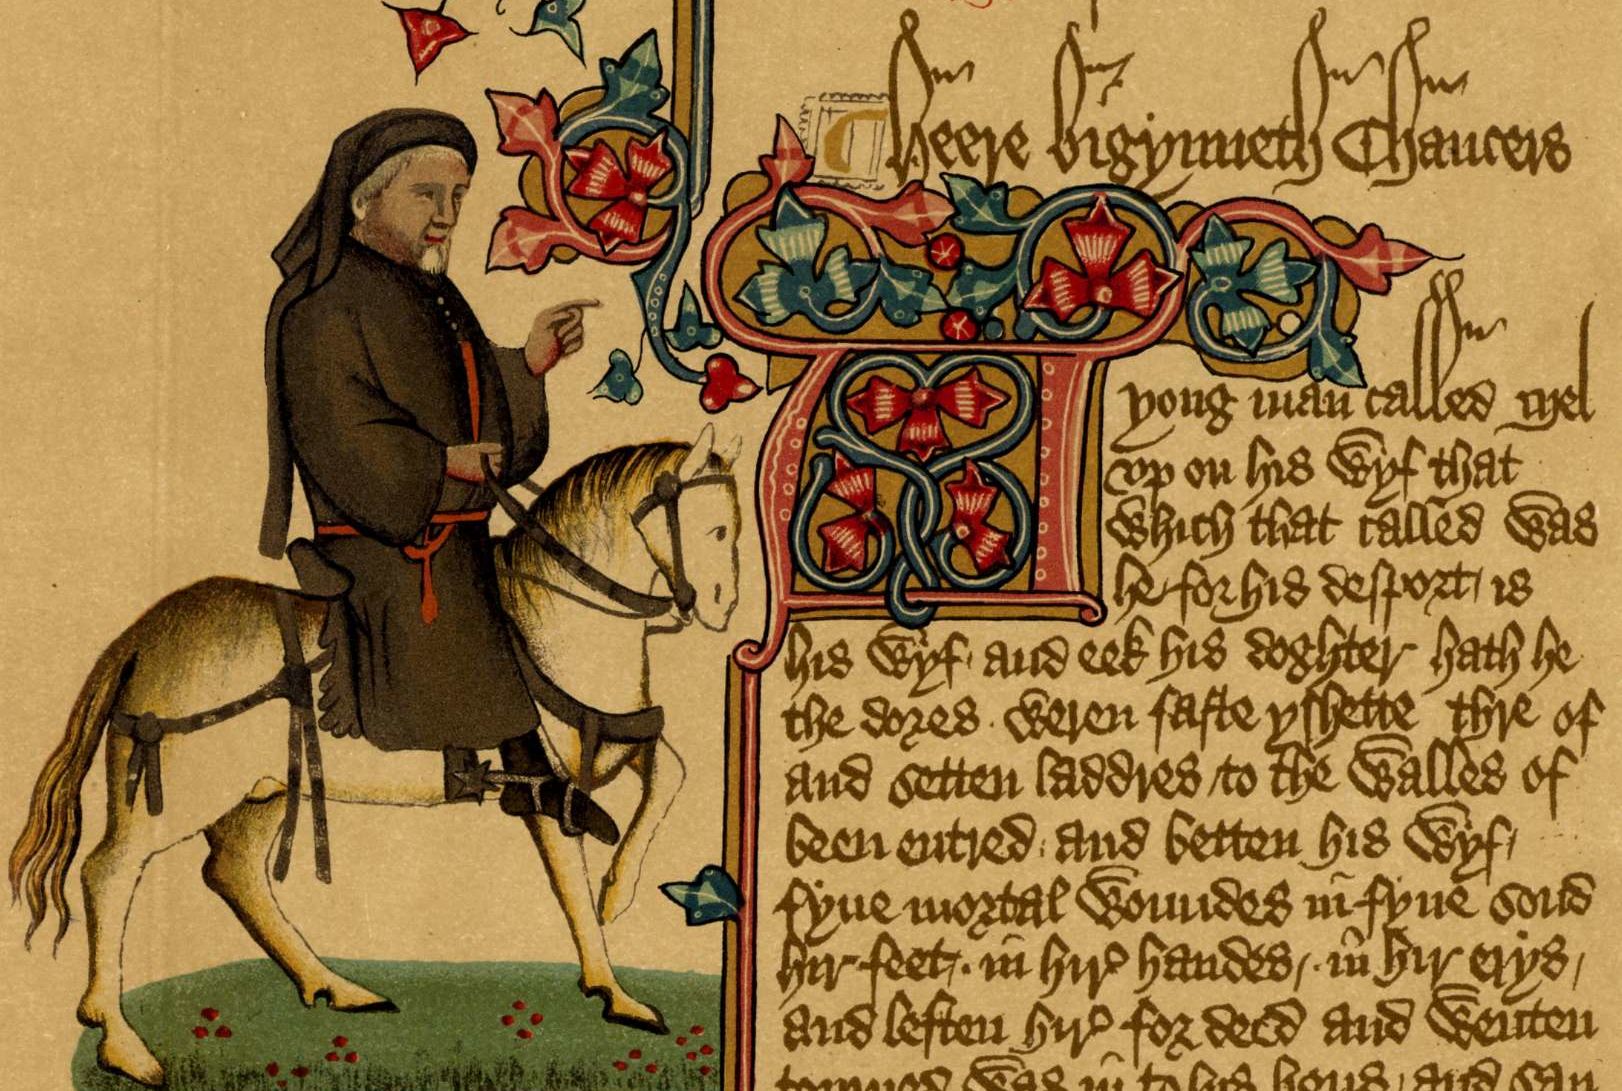 Heere bigynneth Chaucers
A yong man called Mel
vp on his wyf that
which that called was
he for his desport is
his wyf and eek his doghter hath he
the dores weren faste yshette thre of
and setten laddres to the walles of
been entred and betten his wyf
fyue mortal woundes in fyue sond
hir feet in hir handes in hir erys
and leften hir for deed and wenten
tourned was in to his hous and